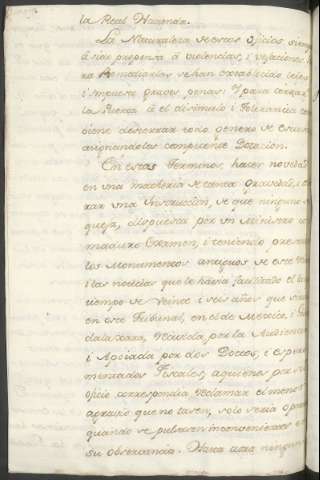 la Real Hacienda.
La Naturaleza de estos oficios siemp
á sido propensa á violencias, i vejaciones
ra Remediarlas se han establecido
i impuesto graves penas: Y para cerrar
la Puerta á el disimulo i Tolerancia con
biene desterrar todo genero de
asignandoles competente Dotacion.
En estos Terminos, hacer novedad
en una materia de tanta gravedad,
rar una Instruccion, de que ninguno se
queja, dispuesta por un Ministro con
maduro Examen, i teniendo presentes
los Monumentos antiguos de este
i las noticias que le havia facilitado el
tiempo de Veinte i seis años que
en este Tribunal, en el de Mexico, i Gua
dalaxara, reducida por la Audiencia
i Apoiada por dos Doctos, i esperi
mentados Fiscales, aquienes por su
oficio correspondia reclamar el menor
agravio que notasen, solo seria
quando se pulsasen inconvenientes en
su observancia. Hasta aora ninguno